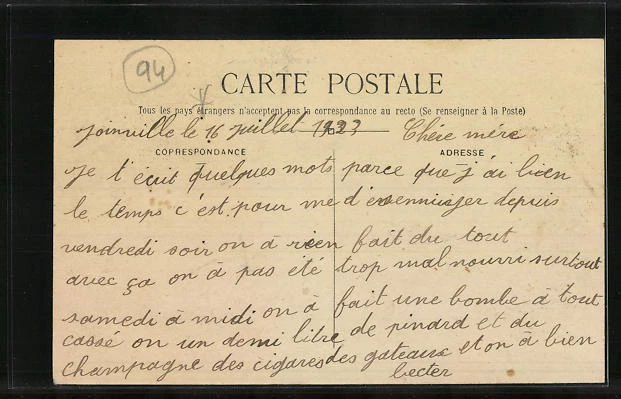 94
CARTE POSTALE
Tous les pays étrangers n'acceptent pas la correspondance au recto (Se renseigner à la Poste)
Joinville le 16 juillet 1923 Chére mére
CORRESPONDANCE ADRESSE
Je t'écrit quelques mots parce que j'ai bien
le temps c'est pour me d'esennuijer depuis
vendredi soir on à rien fait du tout
avec ça on à pas été trop mal nourri surtout
samedi à midi on à fait une bombe à tout
cassé on un demi litre de pinard et du
champagne des cigares des gateaux et on à bien
becter